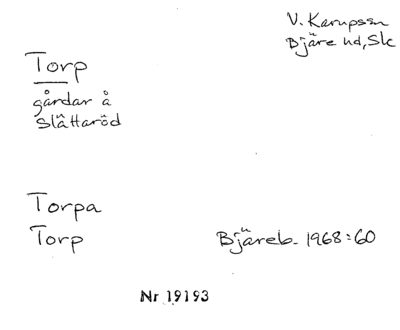 V. Karupssn
Bjäre hd, Sk
Torp
gårdar å
Slättaröd
Torpa
Torp
Bjäreb. 1968:60
Nr 19193